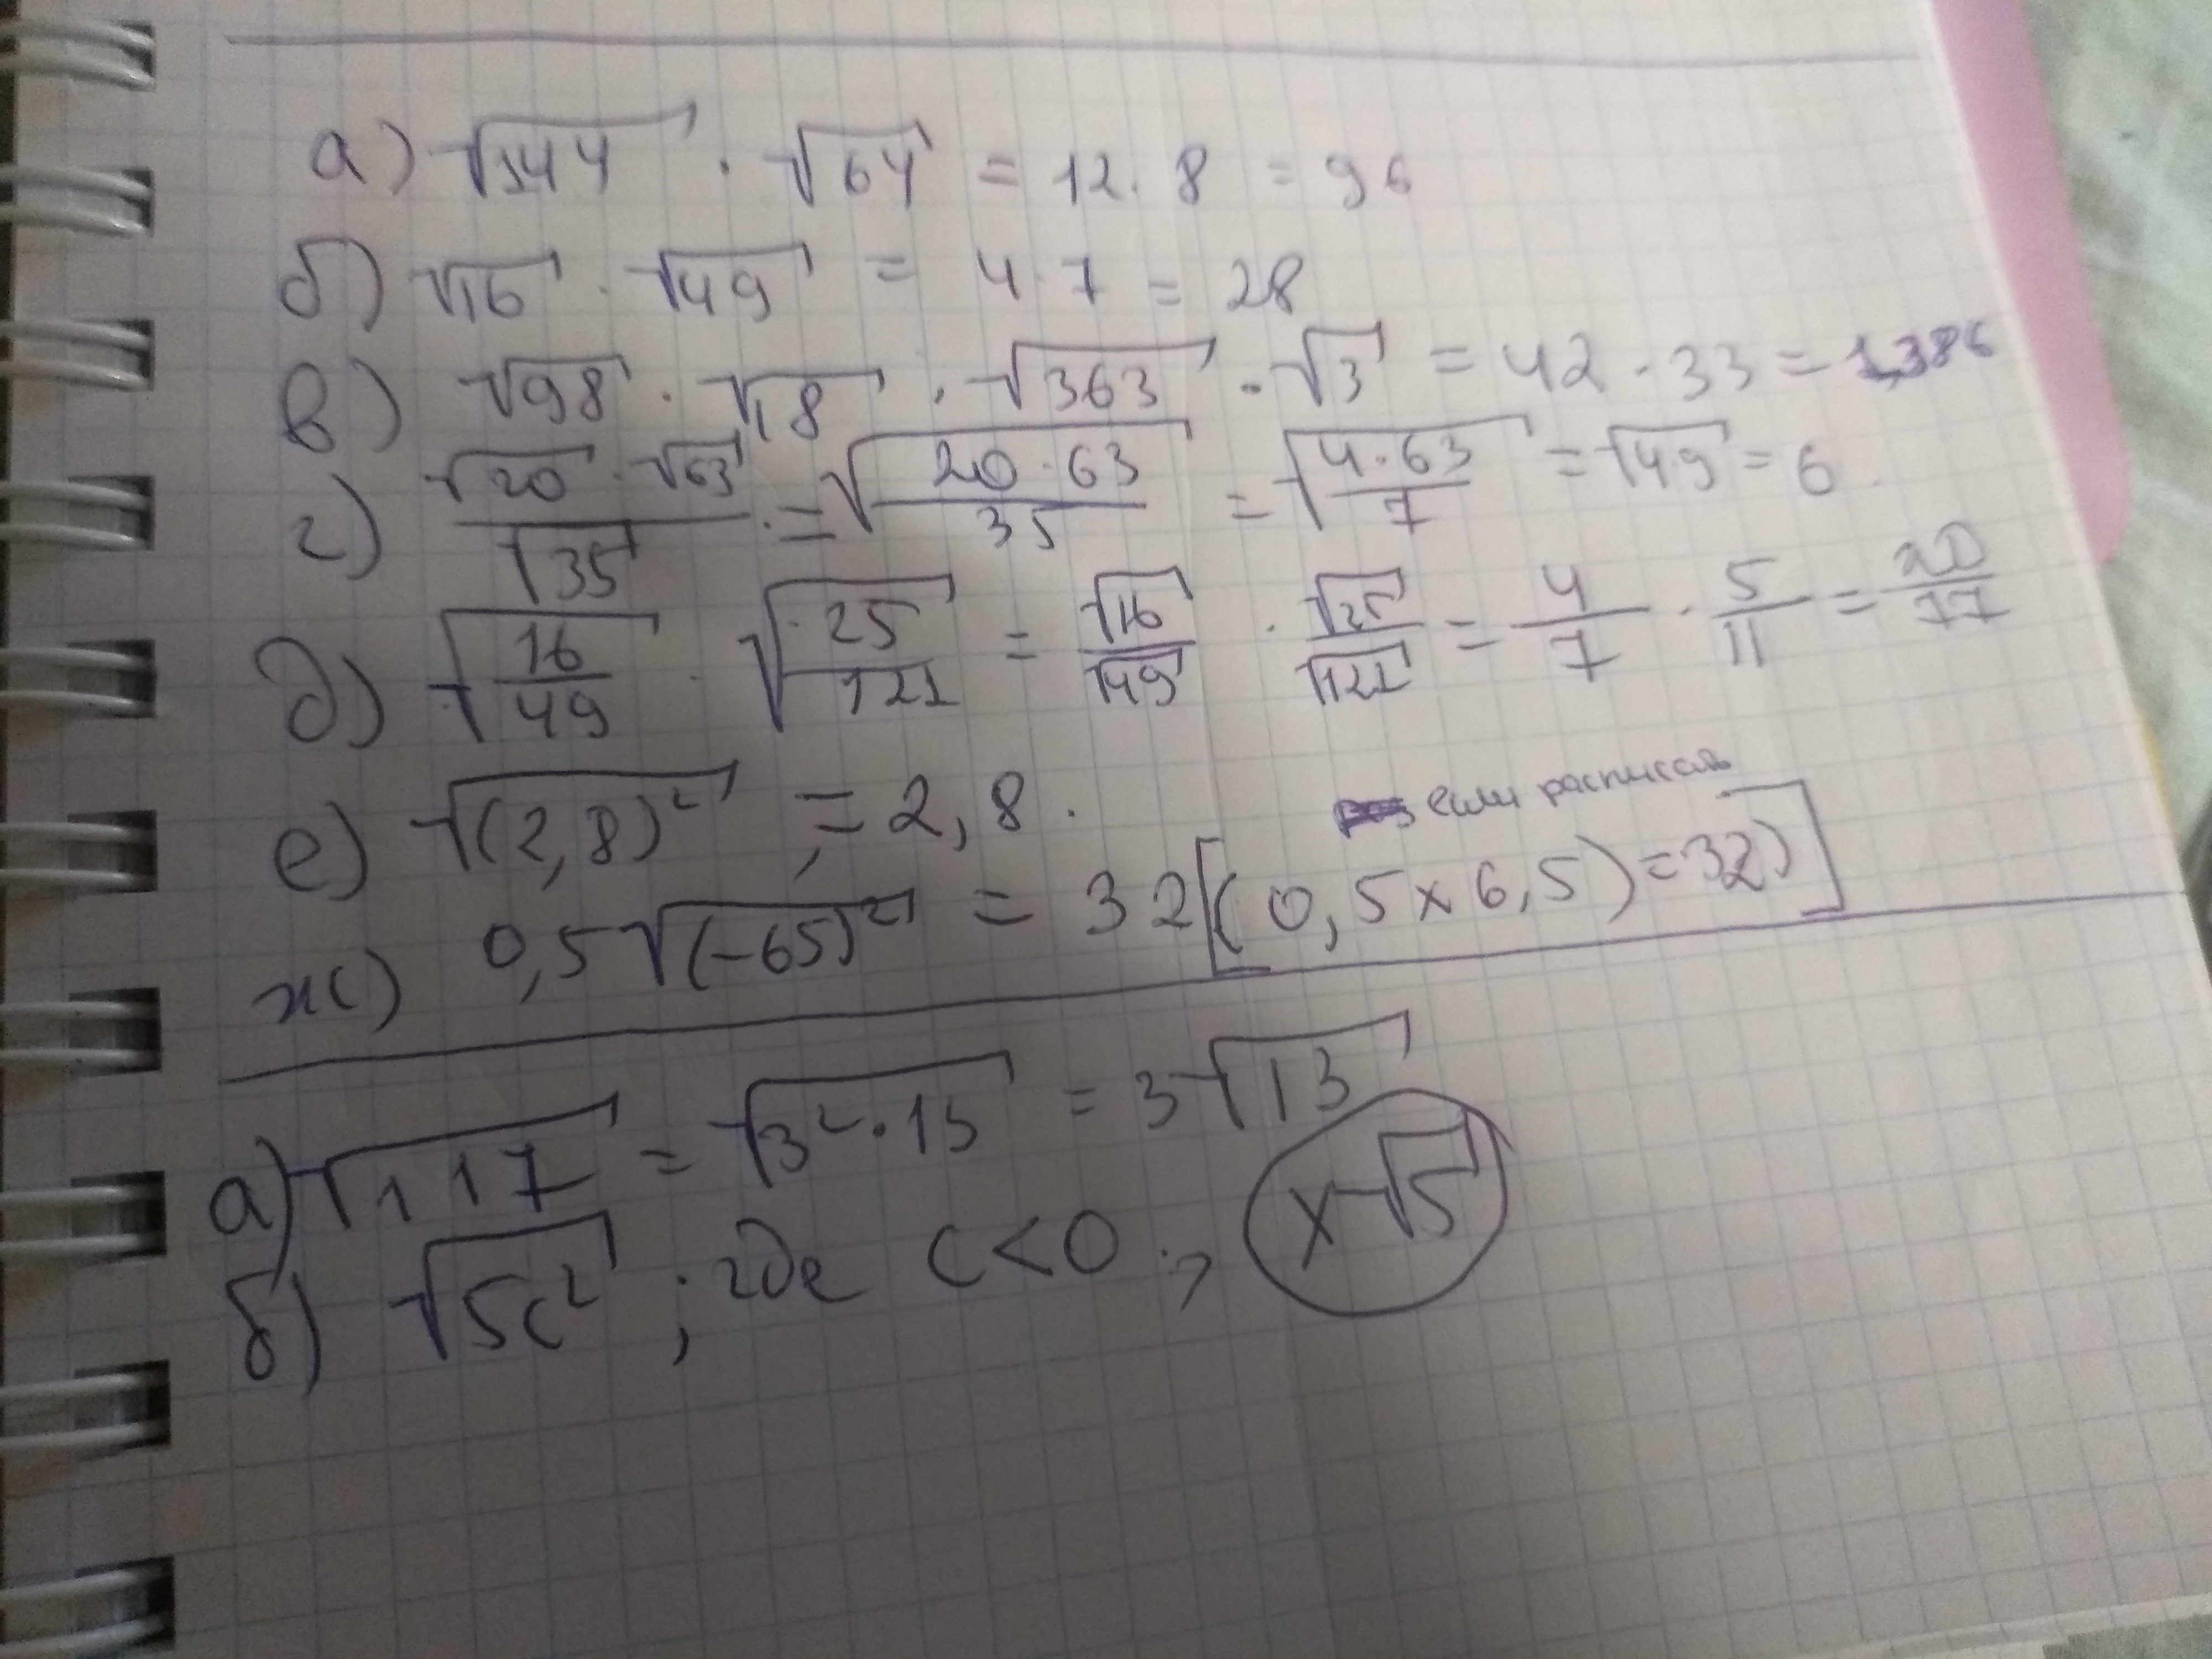 а) √144 · √64 = 12 · 8 = 96
б) √16 · √49 = 4 · 7 = 28
в) √98 · √18 · √363 · √3 = 42 · 33 = 1386
г) (√20 · √63)/√35 = √((20 · 63)/35) = √((4 · 63)/7) = √49 = 6
д) √(16/49) · √(25/121) = √16/√49 · √25/√121 = 4/7 · 5/11 = 20/77
е) √(2,8)² = 2,8.
если расписать
ж) 0,5√(-65)² = 32[(0,5 x 6,5) = 32)]
а) √117 = √3² · 13 = 3√13
б) √5c² ; где c < 0 ; x√5